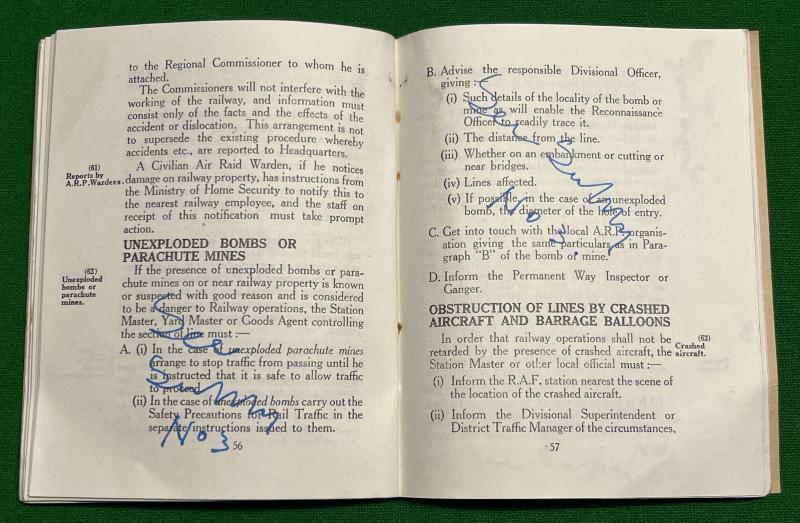 to the Regional Commissioner to whom he is
attached.
The Commissioners will not interfere with the
working of the railway, and information must
consist only of the facts and the effects of the
accident or dislocation. This arrangement is not
to supersede the existing procedure whereby
accidents etc., are reported to Headquarters.
(61)
Reports by
A.R.P. Warders.
A Civilian Air Raid Warden, if he notices
damage on railway property, has instructions from
the Ministry of Home Security to notify this to
the nearest railway employee, and the staff on
receipt of this notification must take prompt
action.
UNEXPLODED BOMBS OR
PARACHUTE MINES
(62)
Unexploded
bombs or
parachute
mines.
If the presence of unexploded bombs or para-
chute mines on or near railway property is known
or suspected with good reason and is considered
to be a danger to Railway operations, the Station
Master, Yard Master or Goods Agent controlling
the section of line must :—
A. (i) In the case of unexploded parachute mines
arrange to stop traffic from passing until he
is instructed that it is safe to allow traffic
to proceed.
(ii) In the case of unexploded bombs carry out the
Safety Precautions for Rail Traffic in the
separate instructions issued to them.
See
No 3
56
B. Advise the responsible Divisional Officer,
giving :—
(i) Such details of the locality of the bomb or
mine as will enable the Reconnaissance
Officer to readily trace it.
(ii) The distance from the line.
(iii) Whether on an embankment or cutting or
near bridges.
(iv) Lines affected.
(v) If possible, in the case of an unexploded
bomb, the diameter of the hole of entry.
See
No 3
C. Get into touch with the local A.R.P. organis-
ation giving the same particulars as in Para-
graph "B" of the bomb or mine.
D. Inform the Permanent Way Inspector or
Ganger.
OBSTRUCTION OF LINES BY CRASHED
AIRCRAFT AND BARRAGE BALLOONS
In order that railway operations shall not be
retarded by the presence of crashed aircraft, the
Station Master or other local official must :—
(63)
Crashed
aircraft.
(i) Inform the R.A.F. station nearest the scene of
the location of the crashed aircraft.
(ii) Inform the Divisional Superintendent or
District Traffic Manager of the circumstances,
57